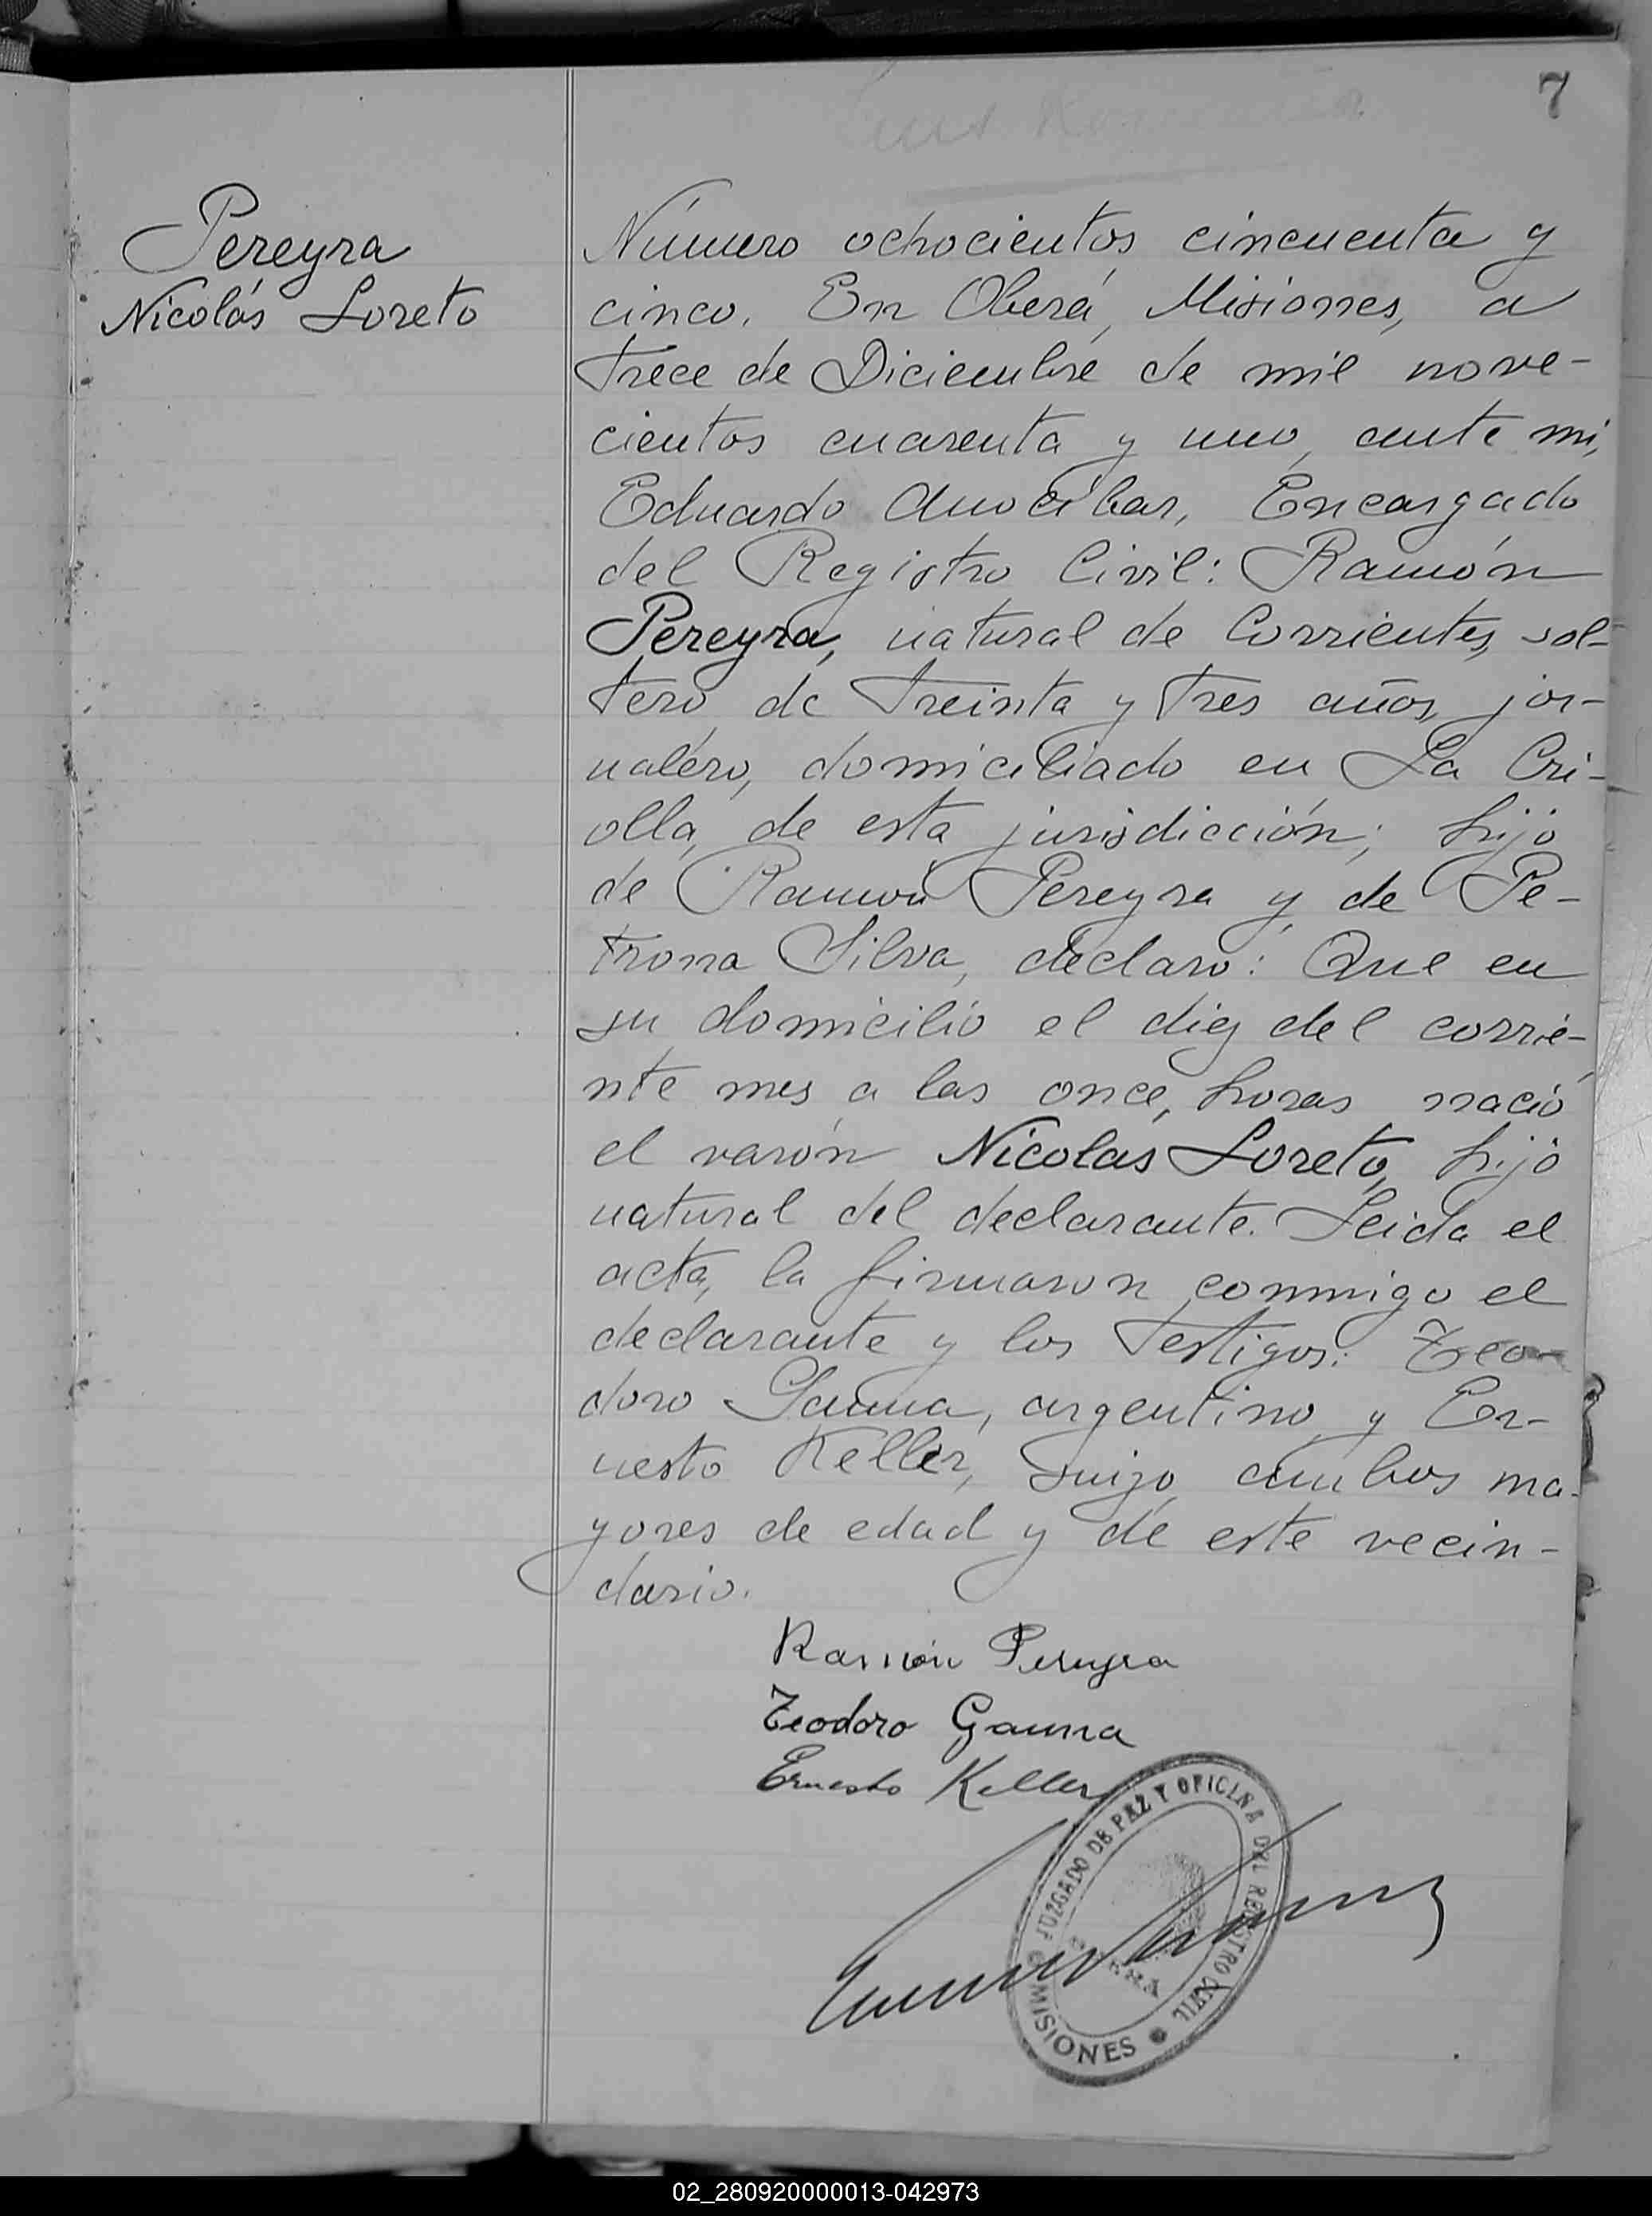 7
Pereyra
Nicolás Loreto
Número ochocientos cincuenta y
cinco. En Oberá, Misiones, a
trece de Diciembre de mil nove-
cientos cuarenta y uno, ante mi,
Eduardo Anocíbar, Encargado
del Registro Civil: Ramón
Pereyra, natural de Corrientes, sol-
tero, de treinta y tres años, jor-
nalero, domiciliado en La Cri-
olla, de esta jurisdicción; hijo
de Ramón Pereyra y de Pe-
trona Silva, declaró: Que en
su domicilio el diez del corrie-
nte mes a las once, horas nació
el varón Nicolás Loreto, hijo
natural del declarante. Leida el
acta, la firmaron conmigo el
declarante y los testigos: Teo-
doro Gauna, argentino y Er-
nesto Keller, suizo, ambos ma-
yores de edad y de este vecin-
dario.
Ramón Pereyra
Teodoro Gauna
Ernesto Keller
JUZGADO DE PAZ Y OFICINA DEL REGISTRO CIVIL
MISIONES
02_280920000013-042973